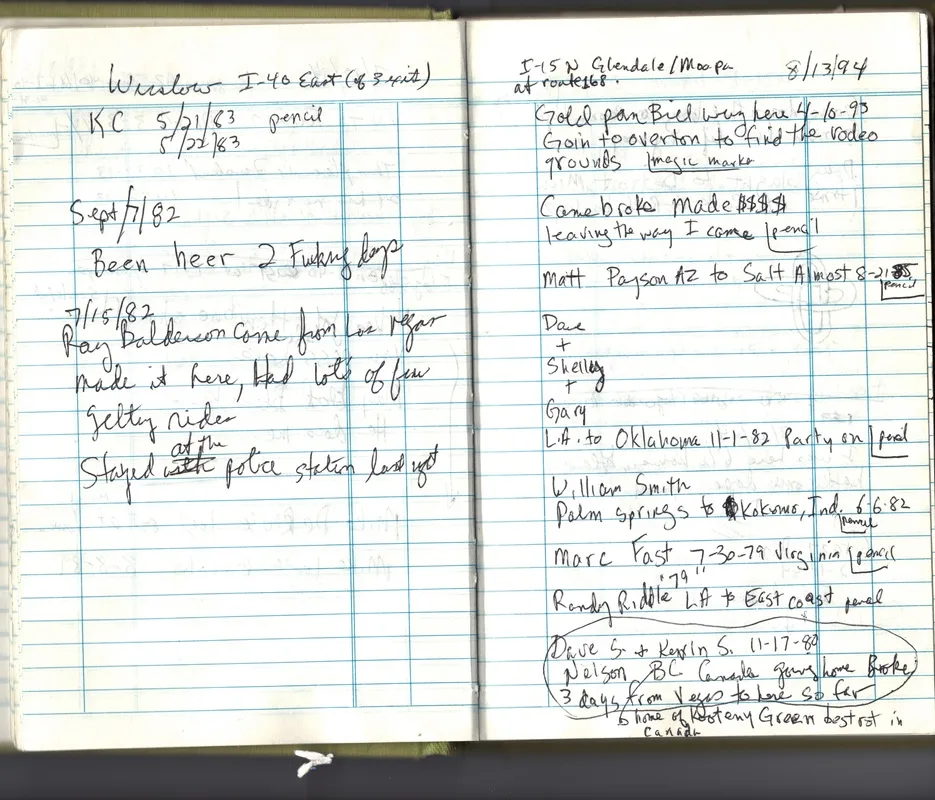 Winslow I-40 East (of 3 exit)
KC 5/21/83 pencil
5/22/83
Sept/7/82
Been heer 2 Fuckng days
7/15/82
Ray Balderson came from Las vegas
made it here, Had lots of fun
getting rides
at the
Stayed police station last
I-15 N Glendale/Moapa 8/13/94
at route 168.
Gold pan Bill was here 4-10-93
Goin to overton to find the rodeo
grounds magic marker
Came broke Made $$$$
leaving the way I came pencil
Matt Payson AZ to Salt Almost 8-21-85
pencil
Dave
+
Shelley
+
Gary
L.A. to Oklahoma 11-1-82 Party on pencil
William Smith
Palm springs to Kokomo, Ind. 6-6-82
pencil
Marc Fast 7-30-79 Virginia pencil
"79"
Randy Riddle LA to East coast pencil
Dave S. + Kevin S. 11-17-80
Nelson, BC Canada going home Broke
3 days from Vegas to here so far
home of Kooteny Green best in
Canada